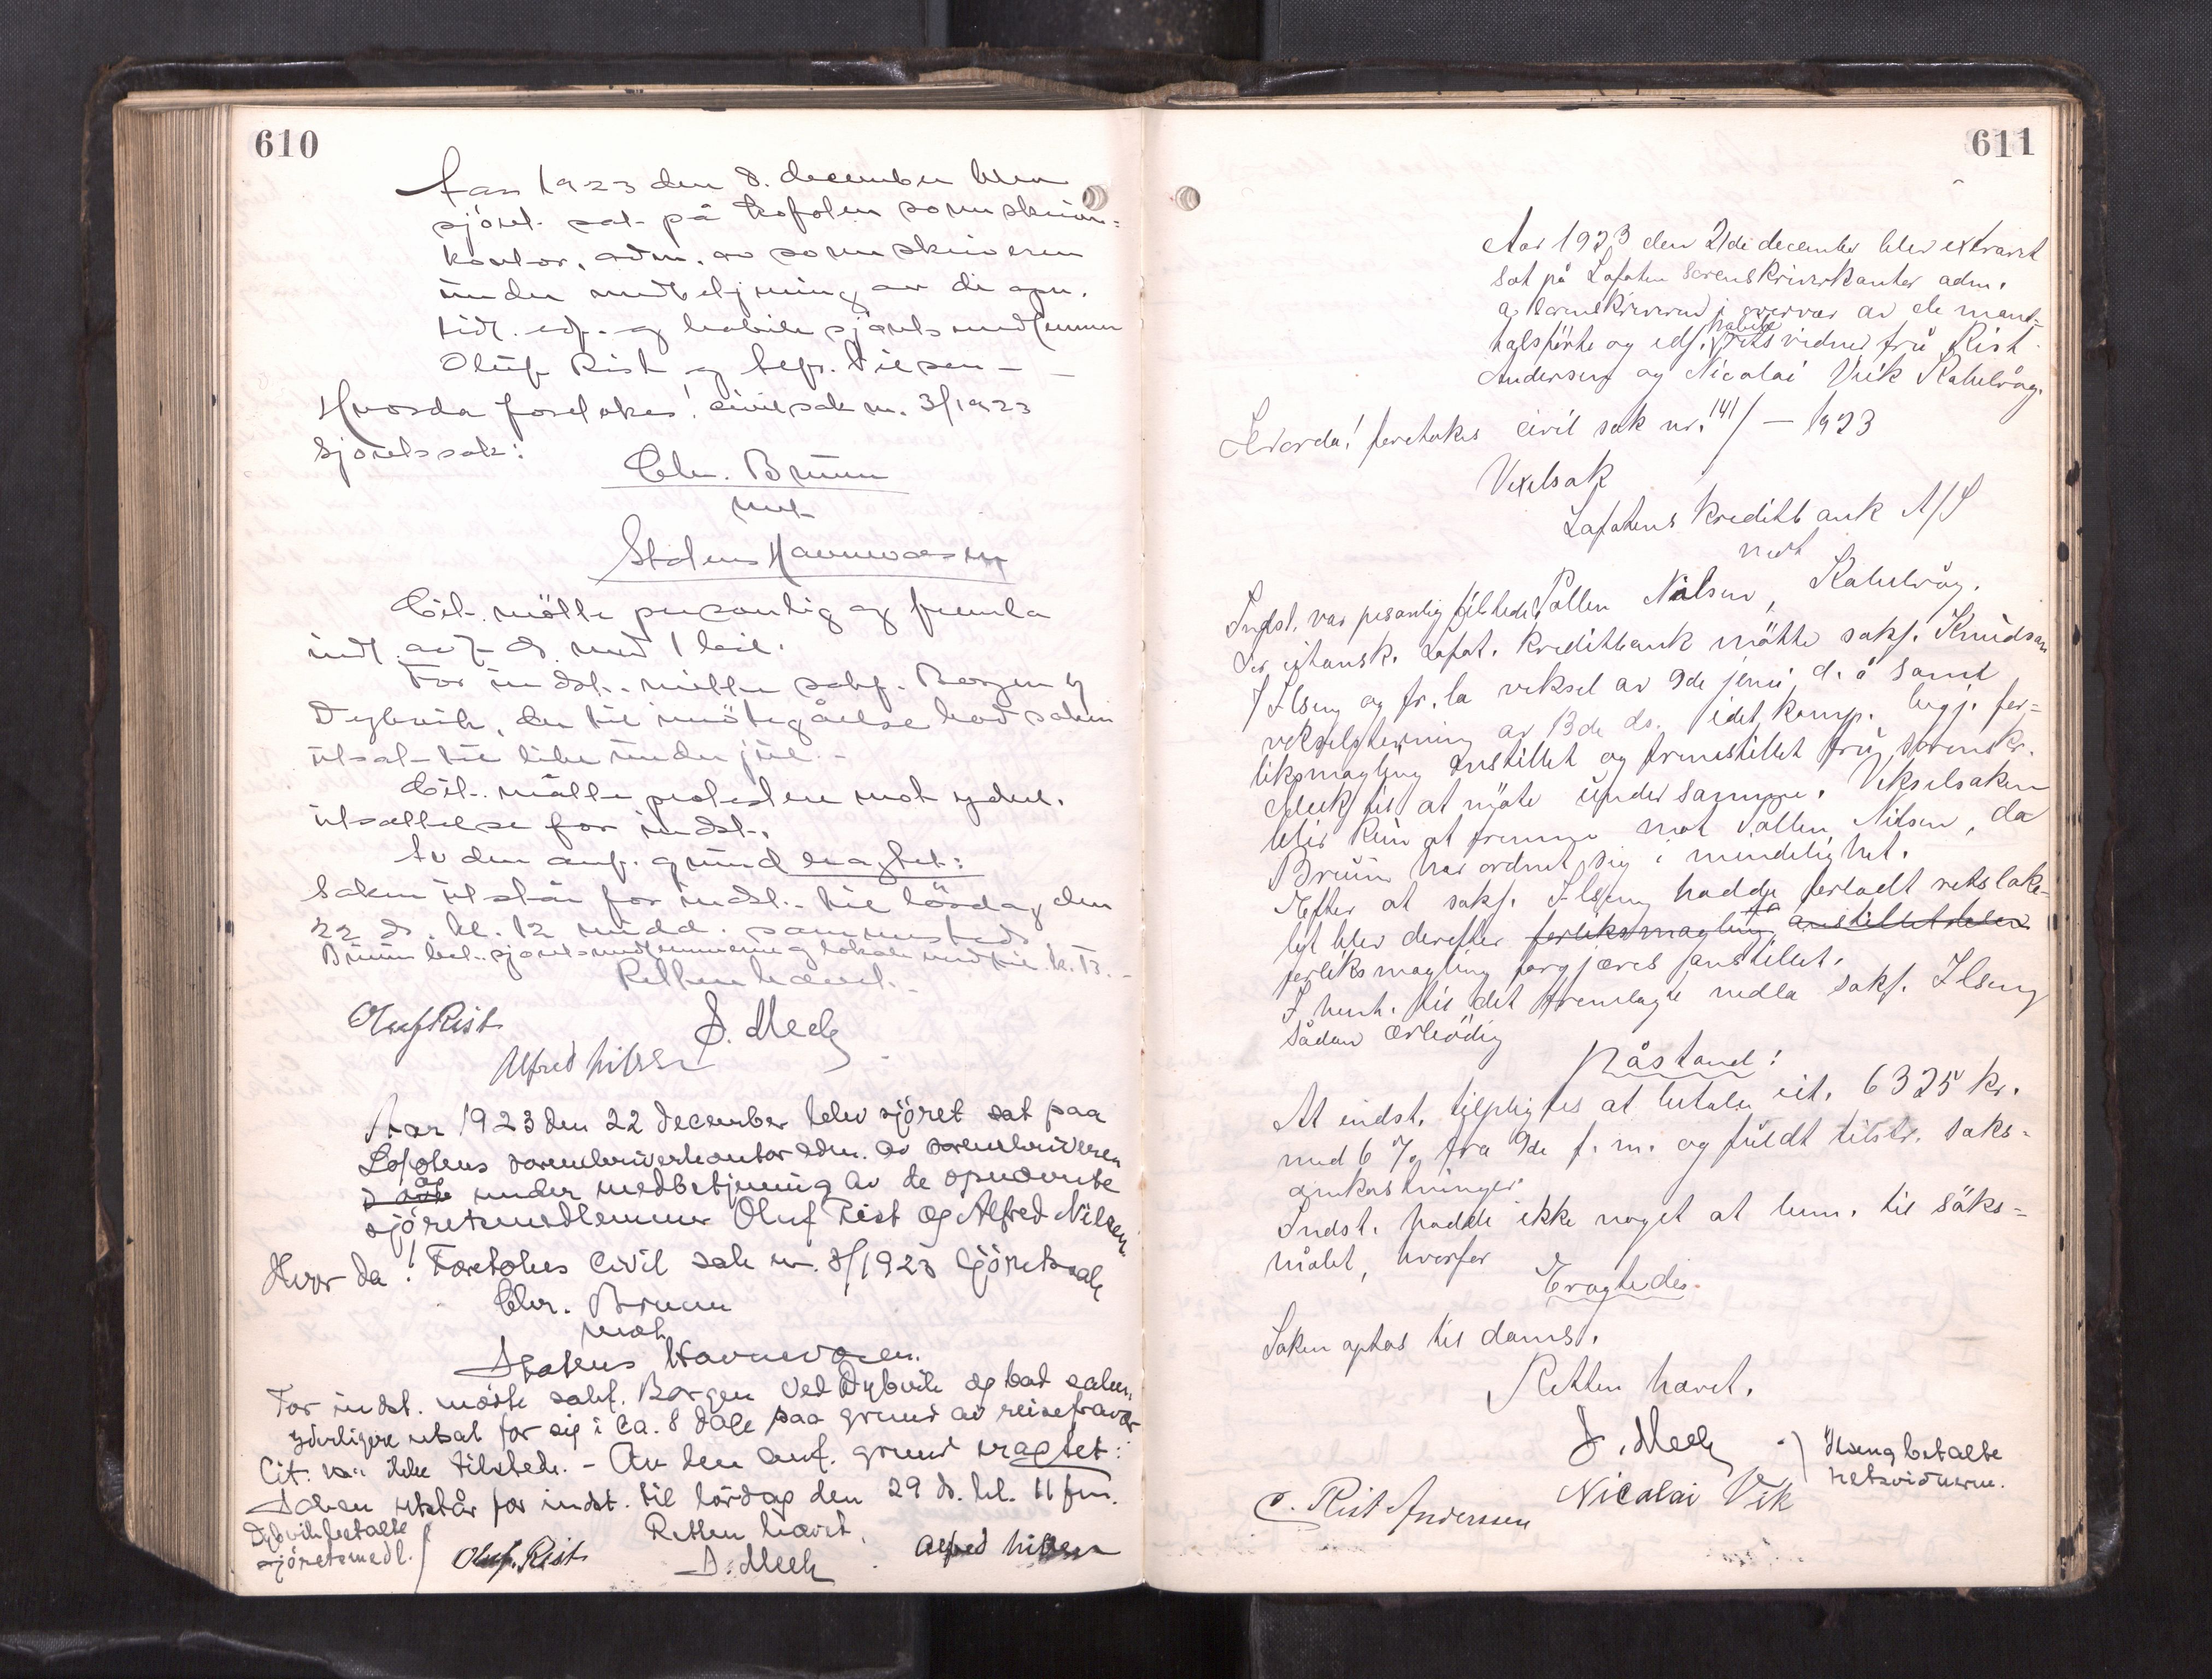 610
Aar 1923 den 8. december blev
sjöret sat på Lofoten sorenskriver=
kontor, adm. av sorenskriveren
under medbetjening av de opn.
tidl. edf. og habile sjöretsmedlemmer
Oluf Rist og Alfr. Nilsen –
Hvorda foretokes! civilsak nr. 3/1923
Sjöretssak:
Chr. Bruun
mot
Statens Havnevæsen
Cit. mötte personlig og fremla
indl. av 7 ds. med 1 bil.
For indst. mötte sakf. Borgen v
Dybvik, der til imötegåelse bad saken
utsat til litt under jul. –
Cit. måtte protestere mot yderl.
utsættelse for indst.
Av den anf. grund eragtet:
Saken utstår for indst. til lördag den
22 ds. kl. 12 midd. sammesteds
Bruun bet. sjöretsmedlemmerne og lokale med kr. 13. –
Retten hævet. –
Oluf Rist
J. Meek
Alfred Nilsen
Aar 1923 den 22 December blev sjöret sat paa
Lofotens sorenskriverkontor adm. av sorenskriveren
og under medbetjening av de opnævnte
sjöretsmedlemmer Oluf Rist og Alfred Nilsen.
Hvor da! Foretokes Civil sak nr. 3/1923 Sjöretssak
Chr. Bruun
mot
Statens Havnevæsen.
For indst. mötte sakf. Borgen ved Dybvik og bad saken
yderligere utsat for sig i ca. 8 dage paa grund av reisefravær
Cit. var ikke tilstede. – Av den anf. grund eragtet:
Saken utstår for indst. til lördag den 29 ds. kl. 11 fm.
Dybvik betalte
sjöretsmedl.
Retten hævet.
Oluf. Rist
J. Meek
Alfred Nilsen
611
Aar 1923 den 21de december blev extraret
sat på Lofoten Sorenskriverkontor adm.
a sorenskriveren i overvær av de mand=
talsförte og edf. habile retsvidner fru Rist
Andersen og Nicolai Viik Kabelvåg.
Hvorda! foretokes civil sak nr. 141/ – 1923
Vexelsak
Lofotens Kreditbank A/S
mot
Pollen Nilsen, Kabelvåg.
Indst. var pesonlig tilstede
For citansk. Lofot. Kreditbank mötte sakf. Knudsen
f Ilseng og fr. la veksel av 9de juni d. å samt
vekselstevning av 13de ds. idet komp. begj. for=
liksmægling anstillet og fremstillet fru sorenskr.
Meek til at möte under samme. Vekselsaken
blir kun at fremme mot Pollen Nilsen, da
Bruun har ordnet sig i mindelighet.
Efter at sakf. Ilseng hadde forladt retsloka-
let blev derefter forliksmægling anstillet uten
forliksmægling forgjæves anstillet.
I henh. til det fremlagte nedla sakf. Ilseng
sådan ærbödig
Påstand!
At indst. tilpligtes at betale cit. 6325 kr.
med 6 % fra 9de f. m. og fuldt tilstr. saks-
omkostninger
Indst. hadde ikke noget at bem. til söks=
målet, hvorfor
Eragtedes.
Saken optas til doms.
Retten hævet.
J. Meek
Ilseng betalte
retsvidnerne.
C. Rist Andersen
Nicolai Vik